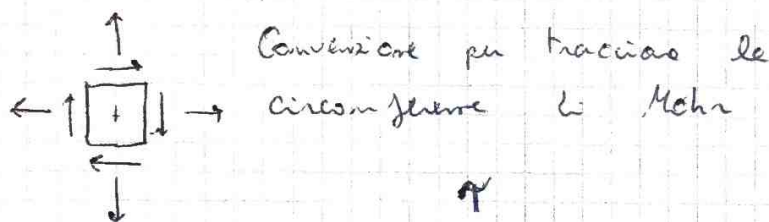 Convenzione per tracciare le
circonferenze di Mohr